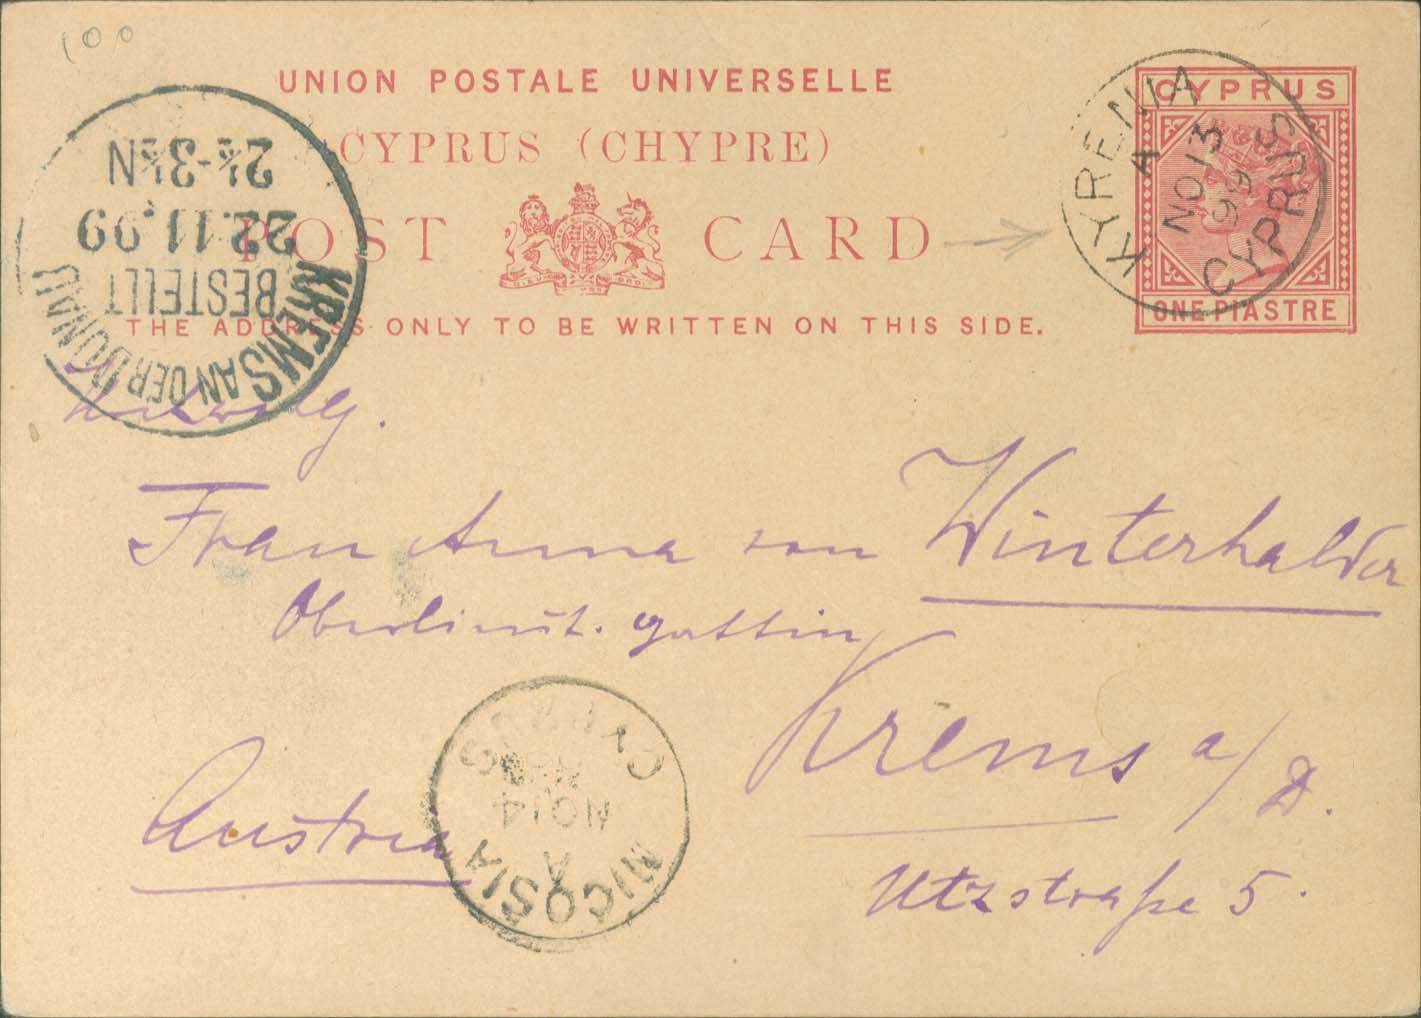 100
UNION POSTALE UNIVERSELLE
CYPRUS (CHYPRE)
POST CARD
THE ADDRESS ONLY TO BE WRITTEN ON THIS SIDE.
CYPRUS
ONE PIASTRE
KYRENIA
A
NO 13
99
CYPRUS
KREMS AN DER DONAU
BESTELLT
22.11.99
2½-3½N
Hochwolg.
Frau Anna von Winterhalder
Oberlieut. gattin
Krems a/D.
Austria
Utzstraße 5.
NICOSIA
A
NO 14
CYPRUS